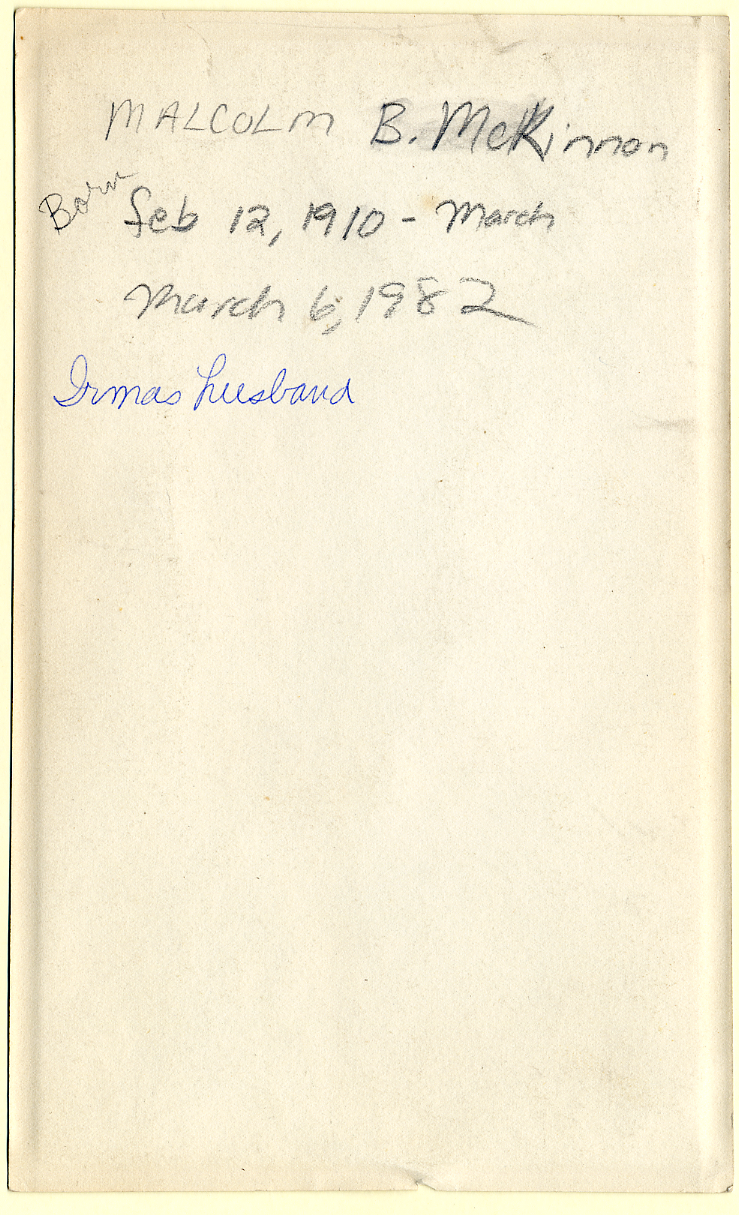 MALCOLM B. McKinnon
Born Feb 12, 1910 - March
March 6, 1982
Irmas husband